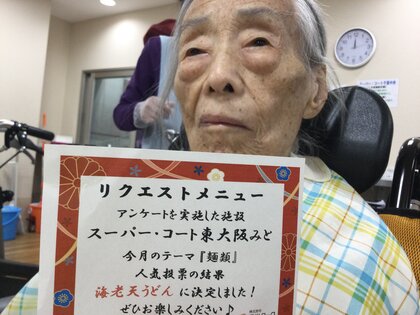 リクエストメニュー
アンケートを実施した施設
スーパー・コート東大阪みと
今月のテーマ『麺類』
人気投票の結果
海老天うどんに決定しました!
ぜひお楽しみください♪